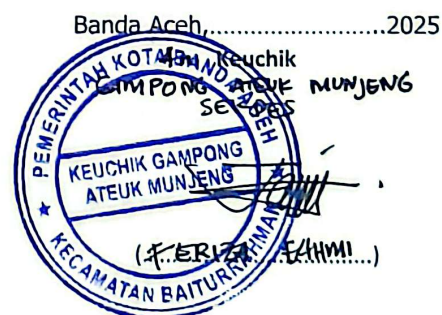 Banda Aceh,..............................2025
An Keuchik
GAMPONG ATEUK MUNJENG
SEKDES
PEMERINTAH KOTA BANDA ACEH
KEUCHIK GAMPONG
ATEUK MUNJENG
KECAMATAN BAITURRAHMAN